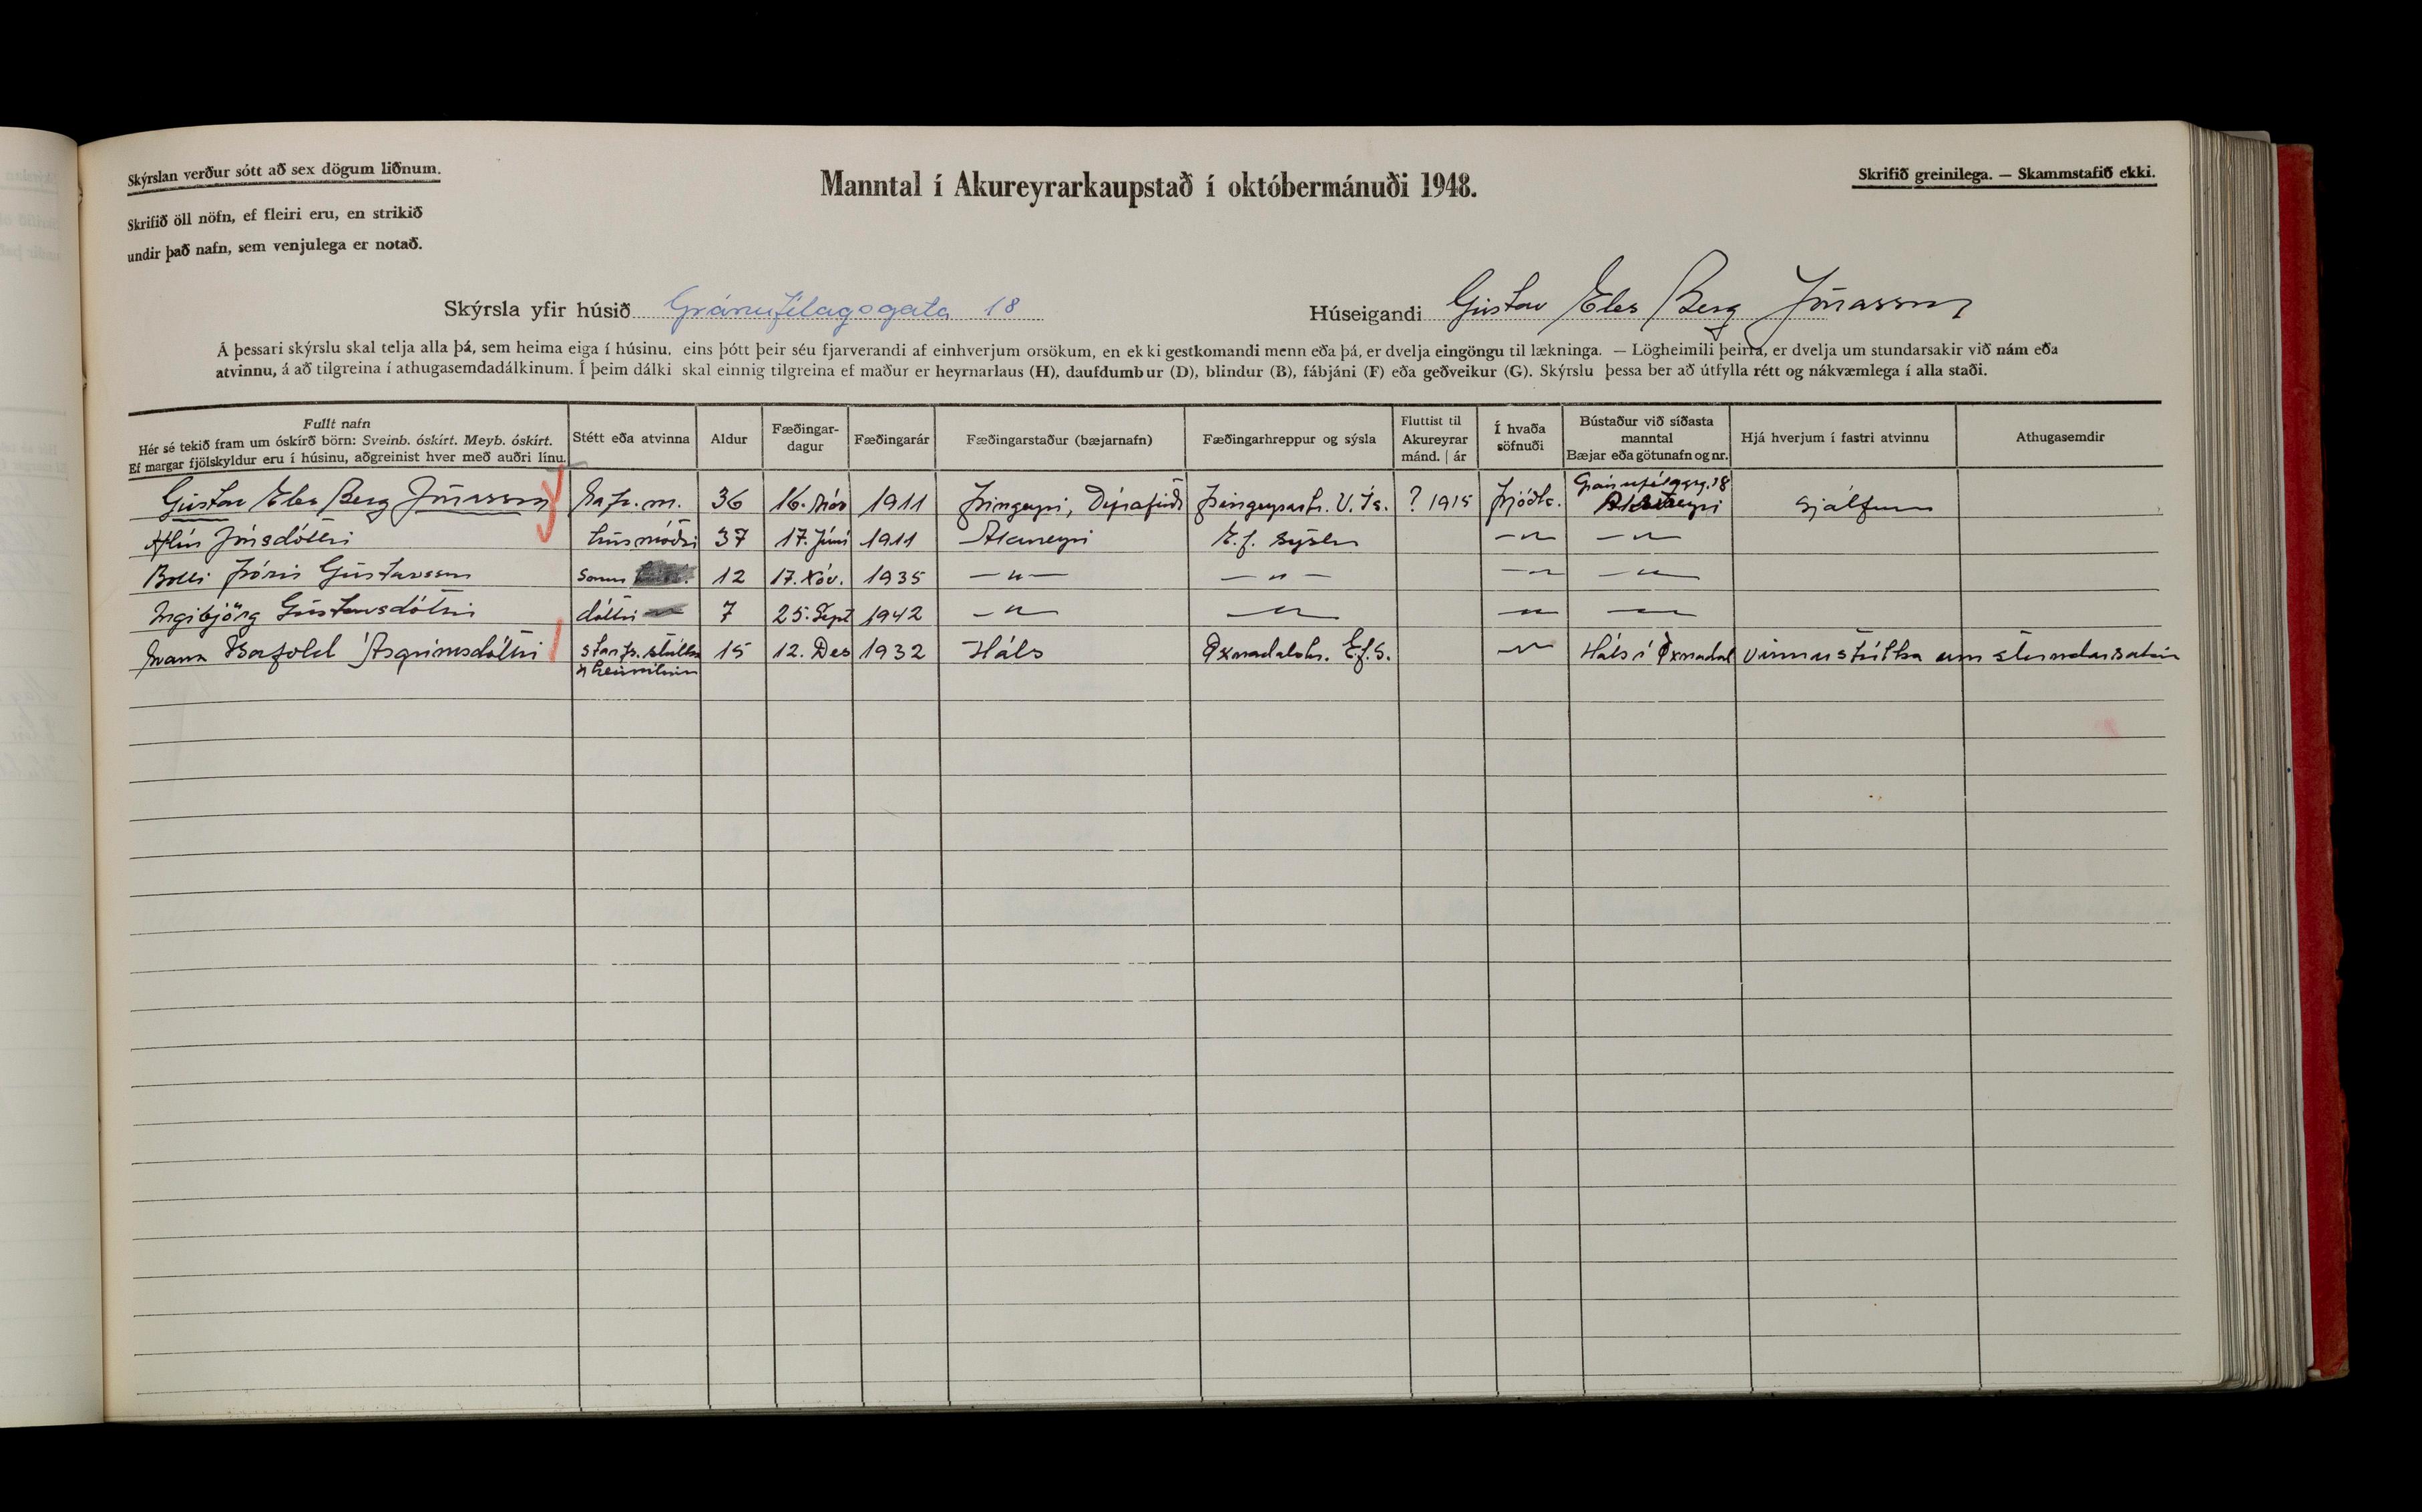 Skýrslan verður sótt að sex dögum liðnum.
Manntal í Akureyrarkaupstað í októbermánuði 1948.
Skrifið greinilega. — Skammstafið ekki.
Skrifið öll nöfn, ef fleiri eru, en strikið
undir það nafn, sem venjulega er notað.
Skýrsla yfir húsið Gránufélagsgata 18
Húseigandi Gústav Eles Berg Jónasson
Á þessari skýrslu skal telja alla þá, sem heima eiga í húsinu, eins þótt þeir séu fjarverandi af einhverjum orsökum, en ekki gestkomandi menn eða þá, er dvelja eingöngu til lækninga. — Lögheimili þeirra, er dvelja um stundarsakir við nám eða
atvinnu, á að tilgreina í athugasemdadálkinum. Í þeim dálki skal einnig tilgreina ef maður er heyrnarlaus (H), daufdumbur (D), blindur (B), fábjáni (F) eða geðveikur (G). Skýrslu þessa ber að útfylla rétt og nákvæmlega í alla staði.
Fullt nafn
Hér sé tekið fram um óskírð börn: Sveinb. óskírt. Meyb. óskírt.
Ef margar fjölskyldur eru í húsinu, aðgreinist hver með auðri línu.
Stétt eða atvinna
Aldur
Fæðingar-
dagur
Fæðingarár
Fæðingarstaður (bæjarnafn)
Fæðingarhreppur og sýsla
Fluttist til
Akureyrar
mánd. | ár
Í hvaða
söfnuði
Bústaður við síðasta
manntal
Bæjar eða götunafn og nr.
Hjá hverjum í fastri atvinnu
Athugasemdir
Gránufélagsg. 18
Gústav Eles Berg Jónasson Rafv.m. 36 16. Nóv 1911 Þingeyri, Dýrafirði Þingeyrarh. V. Ís. ? 1915 Þjóðk. Akureyri Sjálfum
Hlín Jónsdóttir húsmóðir 37 17. Júní 1911 Akureyri E.f. sýslu —"— —"—
Bolli Þórir Gústavsson Sonur 12 17. Nóv. 1935 —"— —"— —"— —"—
Ingibjörg Gústavsdóttir dóttir 7 25. Sept 1942 —"— —"— —"— —"—
Ásgrímsdóttir starfs. stúlka 15 12. Des 1932 Háls Öxnadalshr. Ef.s. —"— Háls í Öxnadal vinnustúlka um stundarsakir
á heimilinu